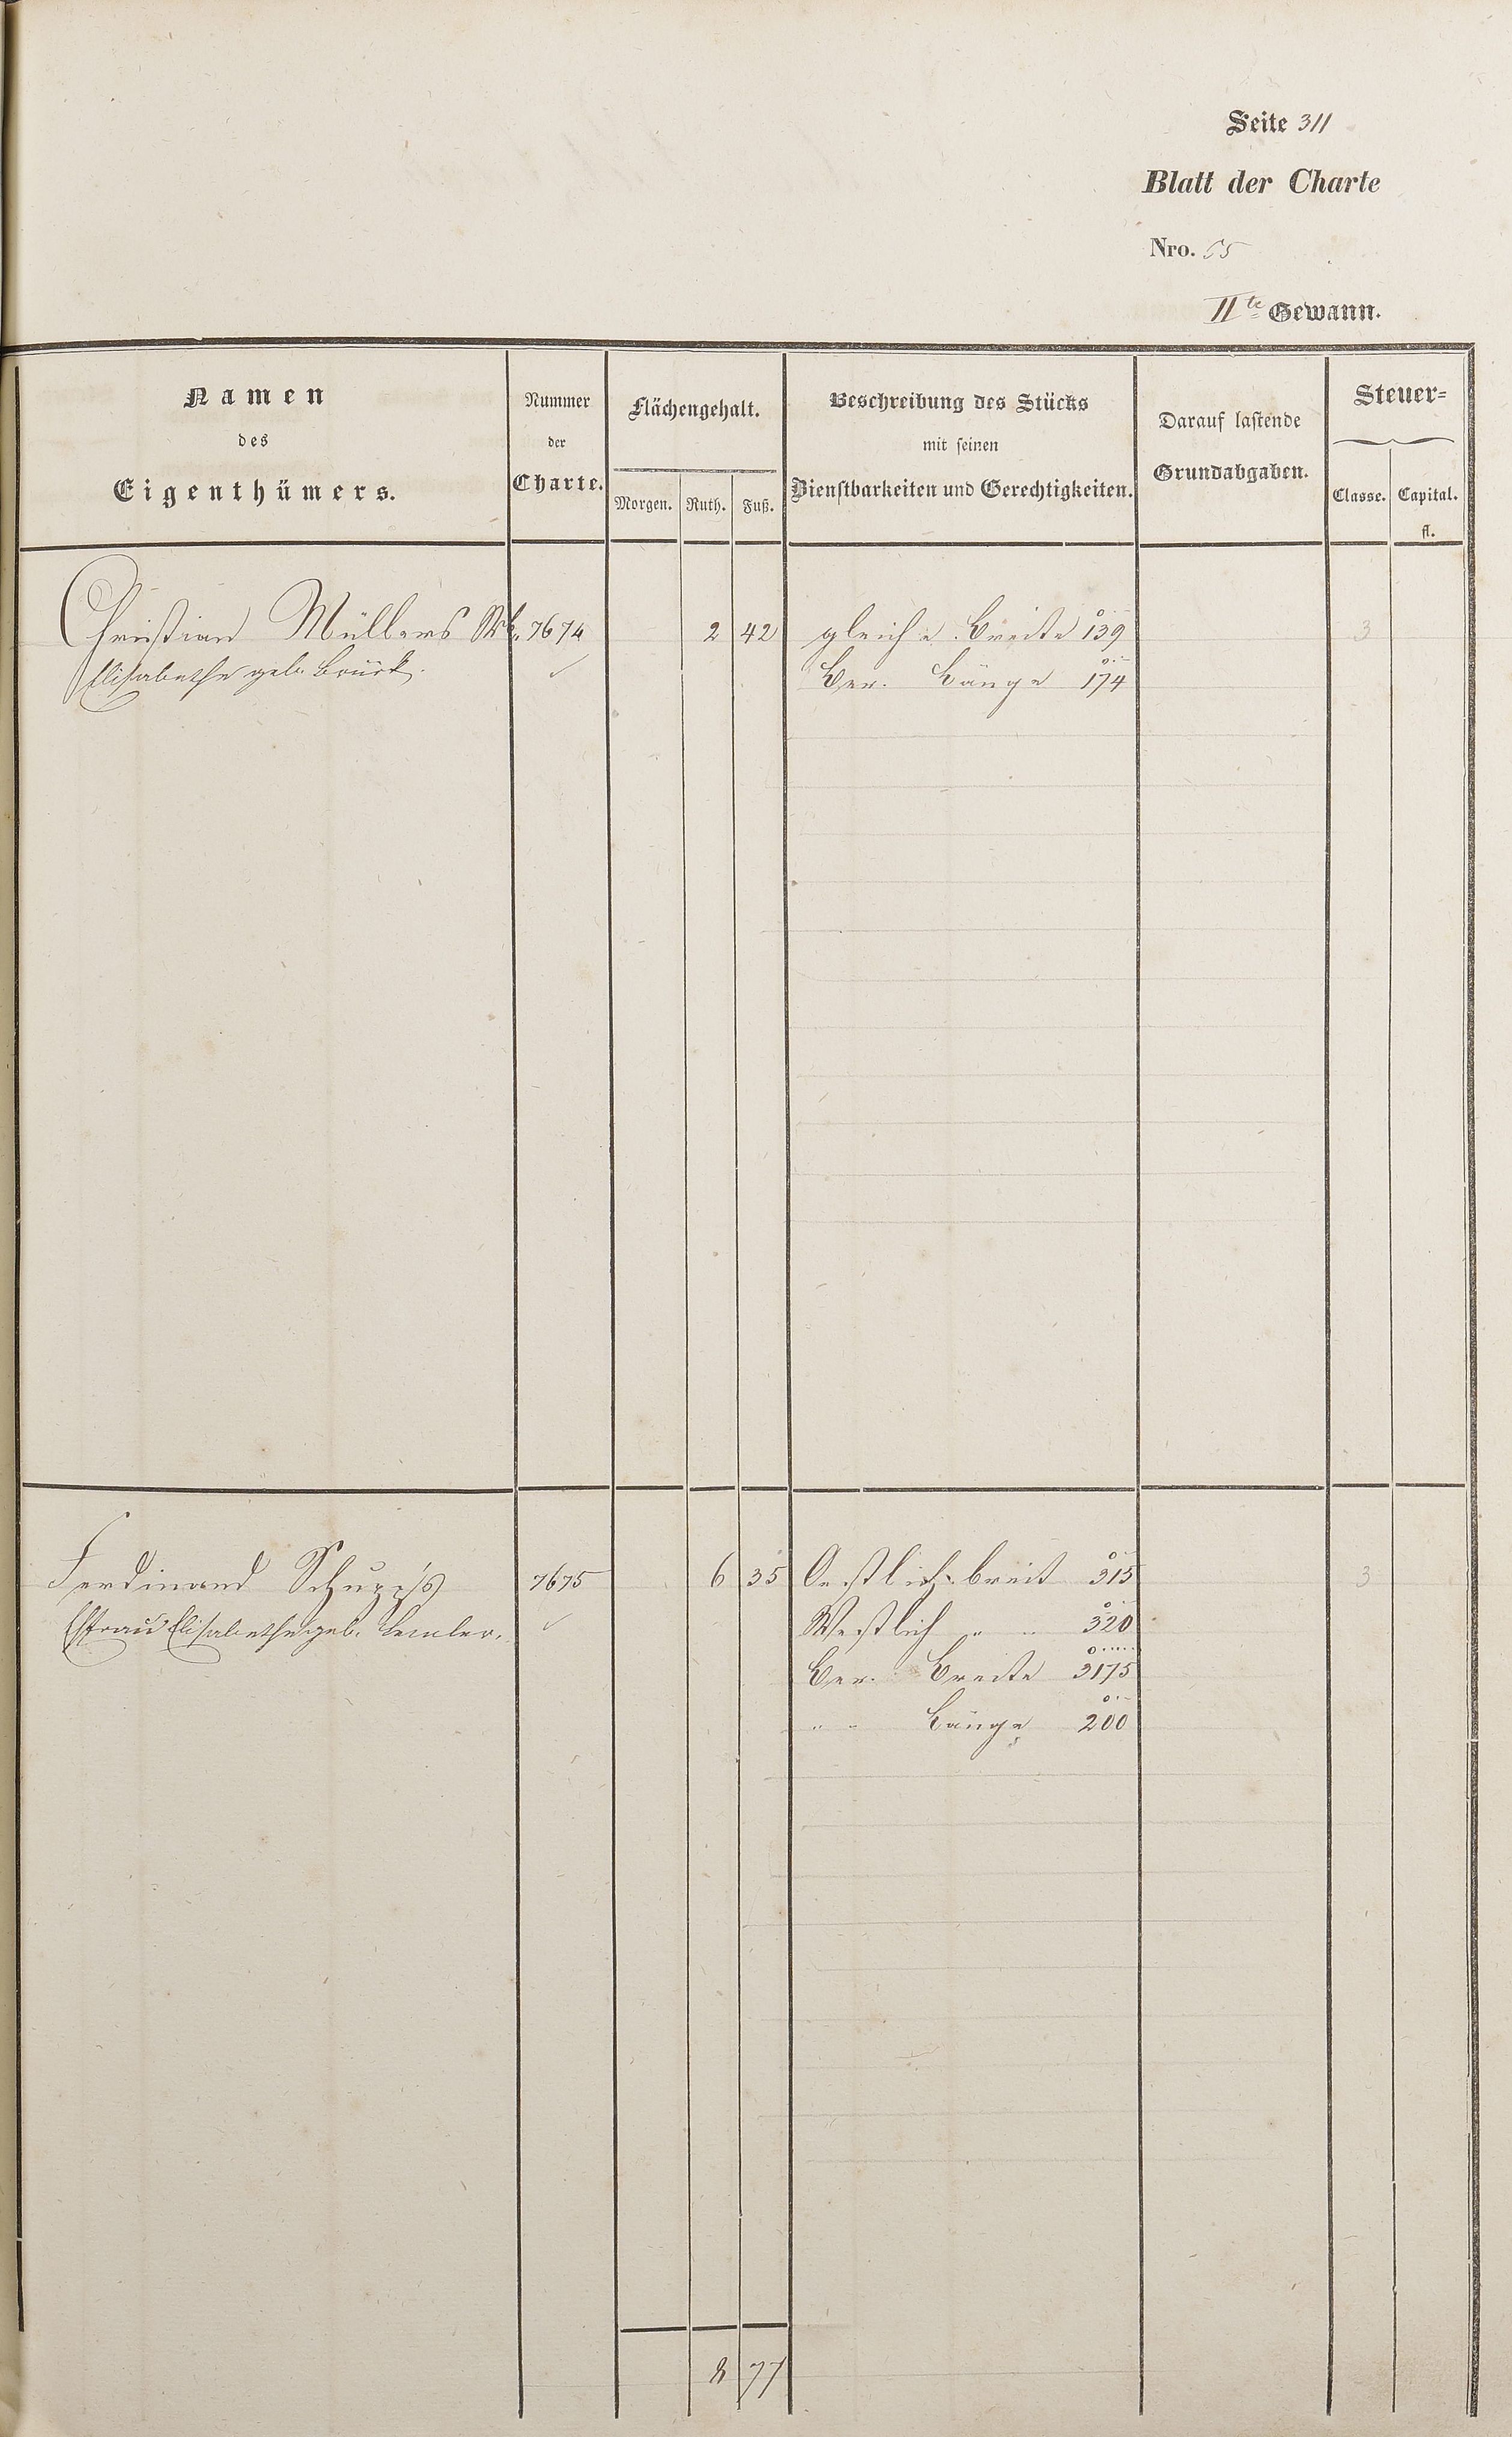 Seite 311
Blatt der Charte
Nro. 55
II te Gewann.
Namen
des
Eigenthümers.
Nummer
der
Charte.
Flächengehalt.
Morgen. Ruth. Fuß.
Beschreibung des Stücks
mit seinen
Dienstbarkeiten und Gerechtigkeiten.
Darauf lastende
Grundabgaben.
Steuer-
Classe. Capital.
fl.
Christian Müllers 7674 2 42 gleiche Breite 139 3
Elisabethe geb. Brück. Ber. Länge 174
Ferdinand Schupp's 7675 6 35 Oestlich breit 315 3
Ehefrau Elisabethe geb. Westlich " " 320
Ber. Breite 3175
" " Länge 200
8 77